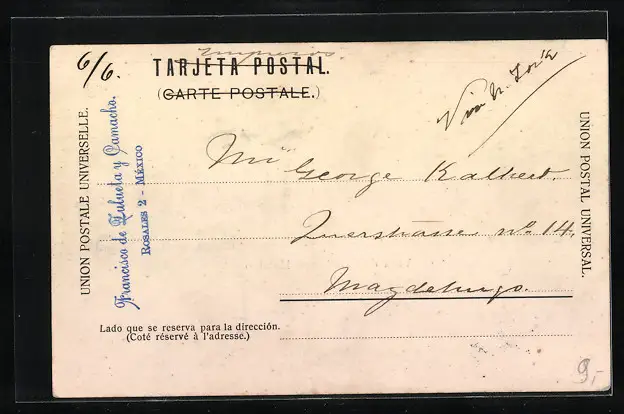 6/6.
Impresos
TARJETA POSTAL.
(CARTE POSTALE.)
Via N. York
UNION POSTALE UNIVERSELLE.
Francisco de Zulueta y Camacho.
ROSALES 2 - MÉXICO
UNION POSTAL UNIVERSAL.
George Kalbert.
Querstrasse nº 14.
Magdeburgo.
Lado que se reserva para la dirección.
(Coté réservé à l'adresse.)
9,-